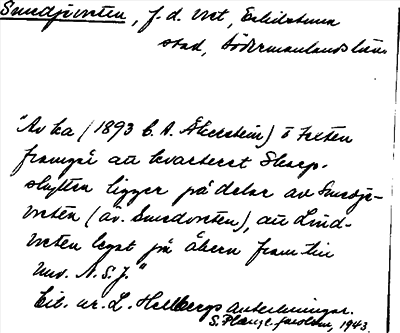 Smedjevreten, f.d. vret, Eskilstuna
stad, Södermanlands län
"Av ka (1893 C. A. Åkerstein) i texten
framgå att kvarteret Skarp-
skytten ligger på delar av Smedje-
vreten (äv. Smedvreten), att Lind-
vreten legat på åkern fram till
nuv. N.S.J."
Cit. ur L. Hellbergs anteckningar.
S. Plenge-Jacobson, 1943.